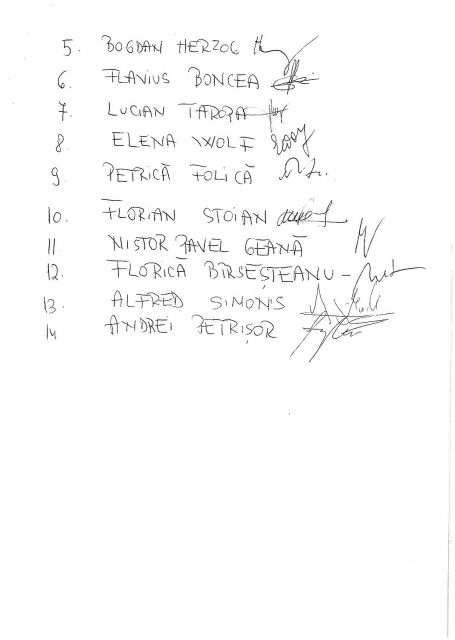 5. BOGDAN HERZOG
6. FLAVIUS BONCEA
7. LUCIAN TAROPA
8. ELENA WOLF
9. PETRICĂ FOLICĂ
10. FLORIAN STOIAN
11. NISTOR PAVEL GEANĂ
12. FLORICĂ BÎRSEȘTEANU -
13. ALFRED SIMONIS
14 ANDREI PETRIȘOR